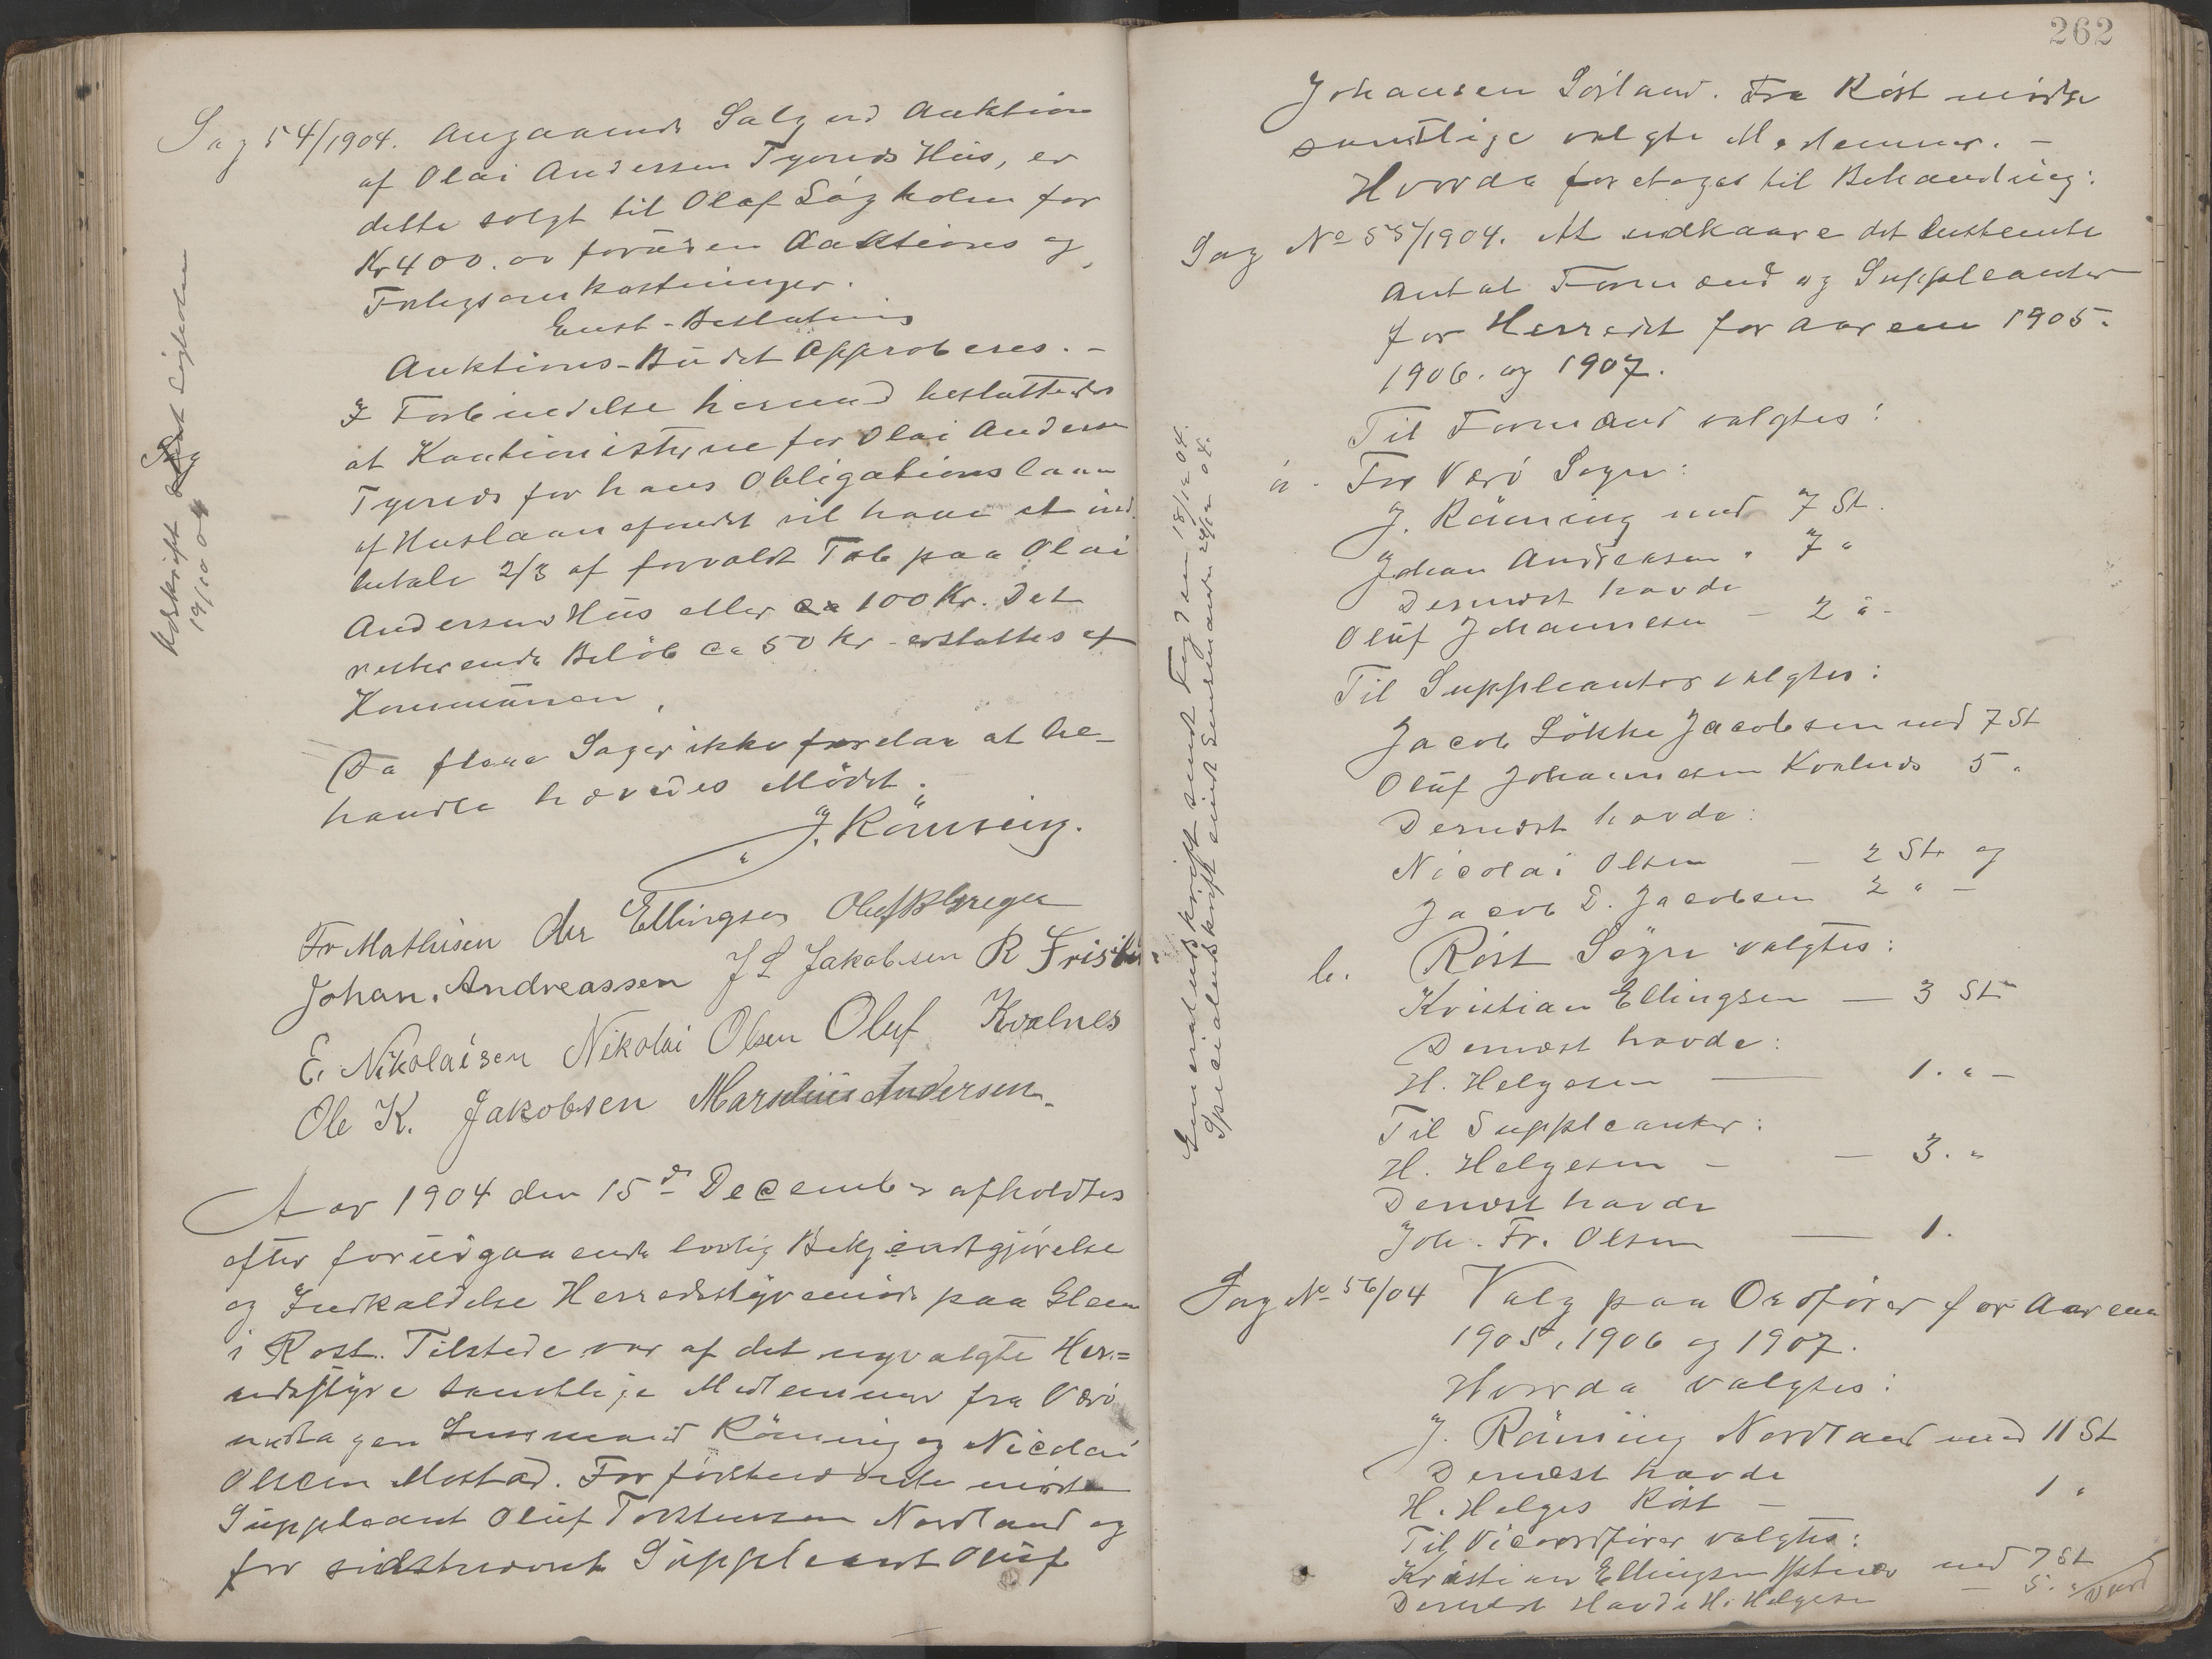 Sag 54/1904. Angaaende Salg ved Auktion
af Olai Andersen Tyvnæs Hus, er
dette solgt til Olaf Løgholm for
Kr 400.00 foruden Auktions og
Forlegsomkostninger.
Enst-Beslutning
Auktions-Budet Approberes. -
I Forbindelse hermed besluttedes
at Kautionisterne for Olai Andersen
for hans Obligationslaan
af Huslaanefondet vil have at ind
betale 2/3 af forvoldt Tab paa Olai
Andersens Hus eller ca 100 Kr. Det
resterende Beløb ca 50 Kr - erstattes af
Kommunen.
Da flere Sager ikke forelaa at be-
handle hævedes Mødet.
J. Rønning.
Fr Mathisen Chr Ellingsen Oluf
Johan. Andreassen J L Jakobsen R
E. Nikolaisen Nikolai Olsen Oluf Kvalnes
Ole K. Jakobsen Marselius Andersen.
Aar 1904 den 15de December afholdtes
efter forudgaaende lovlig Bekjendtgjørelse
og Indkaldelse Herredsstyremøde paa Glea
i Røst. Tilstede var af det nyvalgte Her=
redsstyre samtlige Medlemmer fra Værø
undtagen Lensmand Rønning og Nicolai
Olsen Mostad. For førstnævnte mødte
Suppleant Oluf Torstensen Nordland og
for sidstnævnte Suppleant Oluf
Udskrift
19/10 04
262
Johansen Sørland. Fra Røst mødte
samtlige valgte Medlemmer. -
Hvorda foretoges til Behandling:
Sag No 55/1904. At udkaare det bestemte
Antal Formænd og Suppleanter
for Herredet for Aarene 1905.
1906. og 1907.
Til Formænd valgtes:
a. For Værø Sogn:
J. Rønning med 7 St.
Johan Andreasen " 7 "
Dernæst havde
Oluf Johannesen - 2 " -
Til Suppleanter valgtes:
Jacob Løkke Jacobsen med 7 St
Oluf Johannesen Kvalnes 5 "
Dernæst havde:
Nicolai Olsen - 2 St. og
Jacob D. Jacobsen 2 " -
b. Røst Sogn valgtes:
Kristian Ellingsen - 3 St
Dernæst havde:
H. Helgesen - 1. " -
Til Suppleanter:
H. Helgesen - - 3. "
Dernæst havde
Joh. Fr. Olsen - 1.
Sag No 56/04 Valg paa Ordfører for Aarene
1905, 1906 og 1907.
Hvorda valgtes:
J. Rønning Nordland med 11 St
Dernæst havde
H. Helges Røst - 1 "
Til Viceordfører valgtes:
Kristian Ellingsen med 7 St
Dernæst havde H. Helgesen - 5. "
vend
Generaludskrift sendt Fogden 18/12 04.
Specialudskrift sendt Lensmanden 24/12 04.